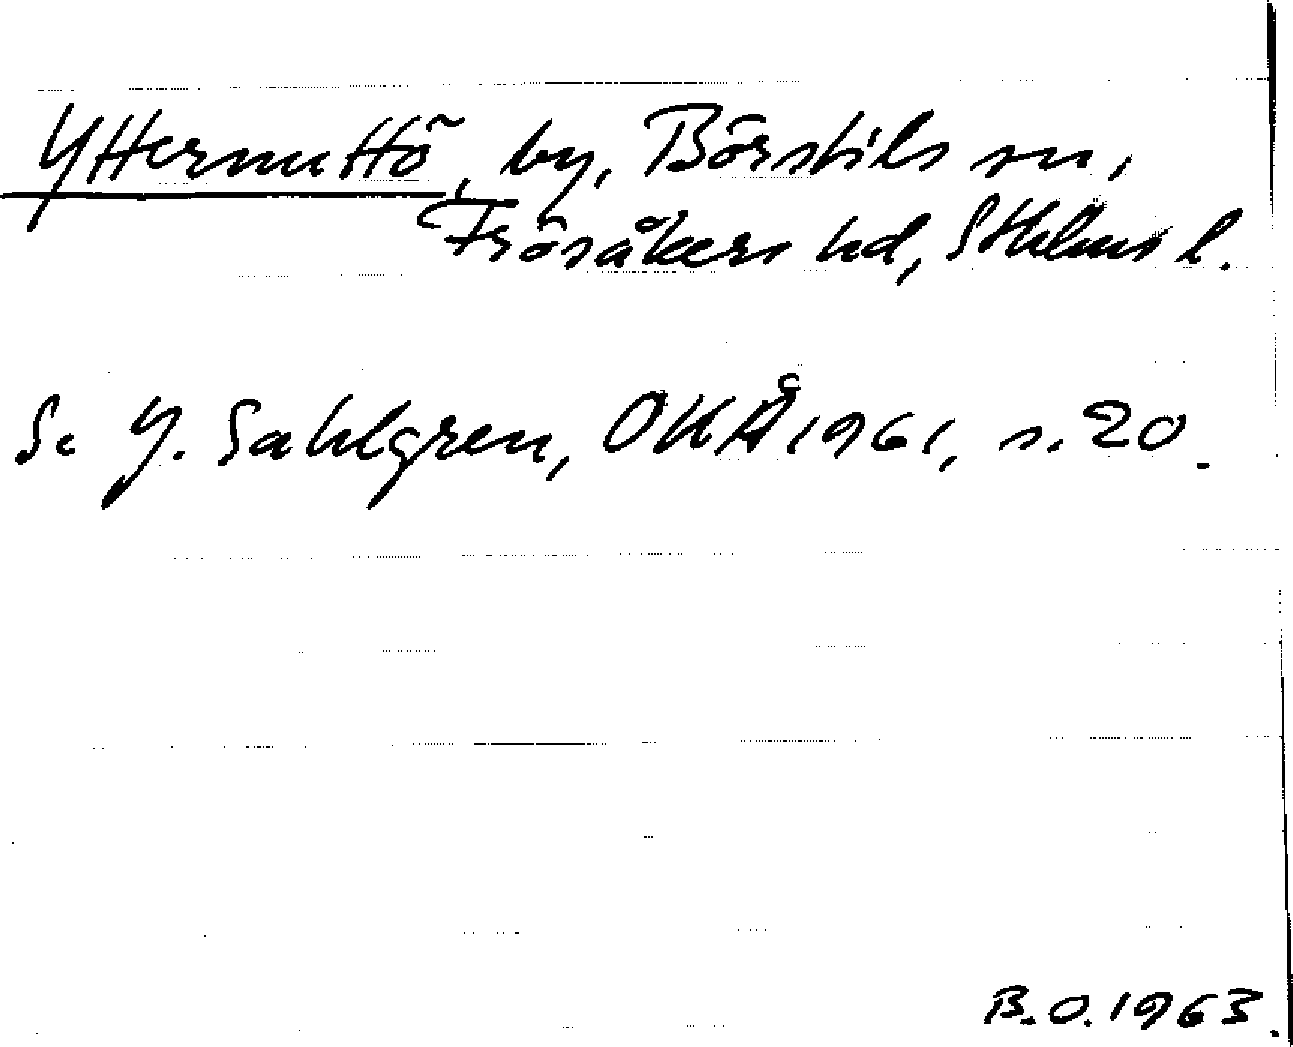 Yttermuttö, by, Börstils sn,
Frösåkers hd, Sthlms l.
Se J. Sahlgren, OKÅ 1961, s. 20.
B.O. 1963.